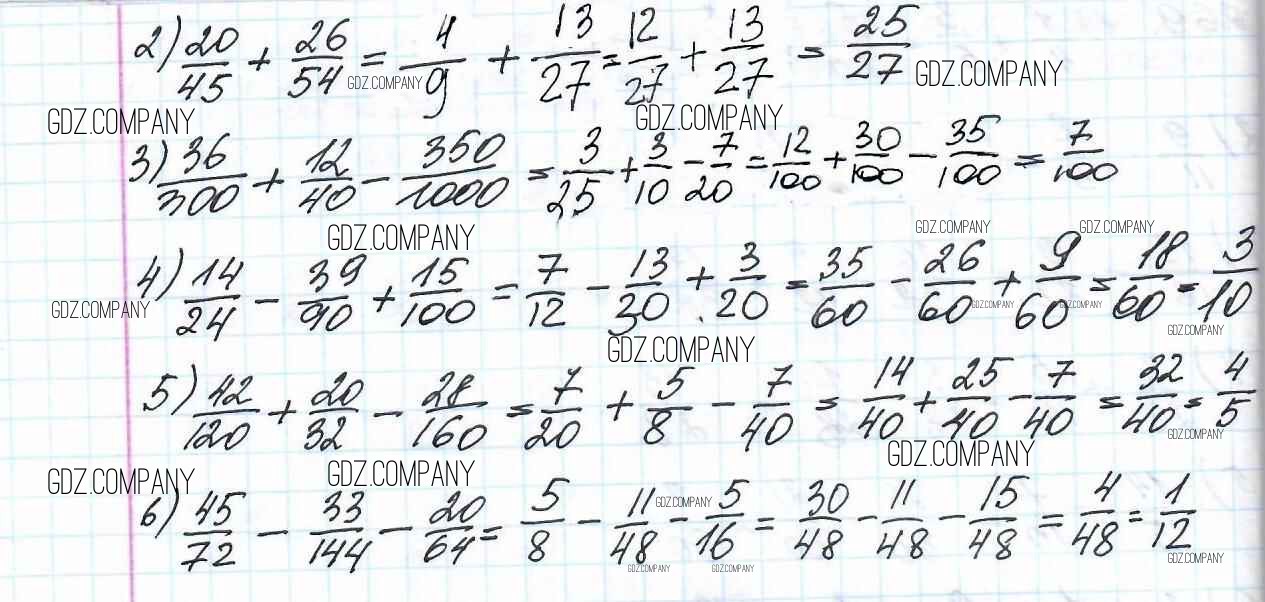 2) 20/45 + 26/54 = 4/9 + 13/27 = 12/27 + 13/27 = 25/27
GDZ.COMPANY GDZ.COMPANY
GDZ.COMPANY GDZ.COMPANY
3) 36/300 + 12/40 - 350/1000 = 3/25 + 3/10 - 7/20 = 12/100 + 30/100 - 35/100 = 7/100
GDZ.COMPANY GDZ.COMPANY GDZ.COMPANY
4) 14/24 - 39/90 + 15/100 = 7/12 - 13/30 + 3/20 = 35/60 - 26/60 + 9/60 = 18/60 = 3/10
GDZ.COMPANY GDZ.COMPANY GDZ.COMPANY
GDZ.COMPANY GDZ.COMPANY
5) 42/120 + 20/32 - 28/160 = 7/20 + 5/8 - 7/40 = 14/40 + 25/40 - 7/40 = 32/40 = 4/5
GDZ.COMPANY
GDZ.COMPANY GDZ.COMPANY GDZ.COMPANY
6) 45/72 - 33/144 - 20/64 = 5/8 - 11/48 - 5/16 = 30/48 - 11/48 - 15/48 = 4/48 = 1/12
GDZ.COMPANY
GDZ.COMPANY GDZ.COMPANY GDZ.COMPANY